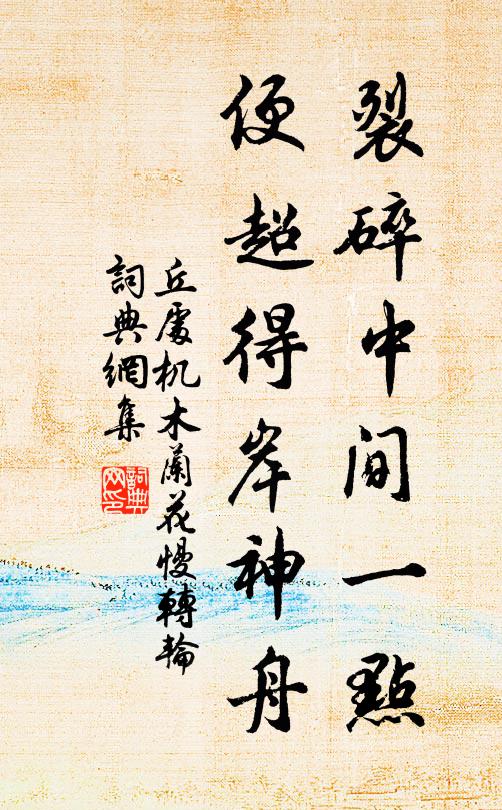 裂碎中間一點
便超得岸神舟
丘處机木蘭花慢轉輪
詞典網集
詞典
网印